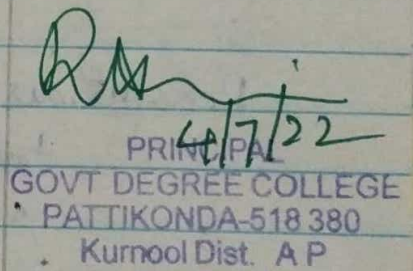 4/7/22
PRINCIPAL
GOVT DEGREE COLLEGE
PATTIKONDA-518 380
Kurnool Dist. A P